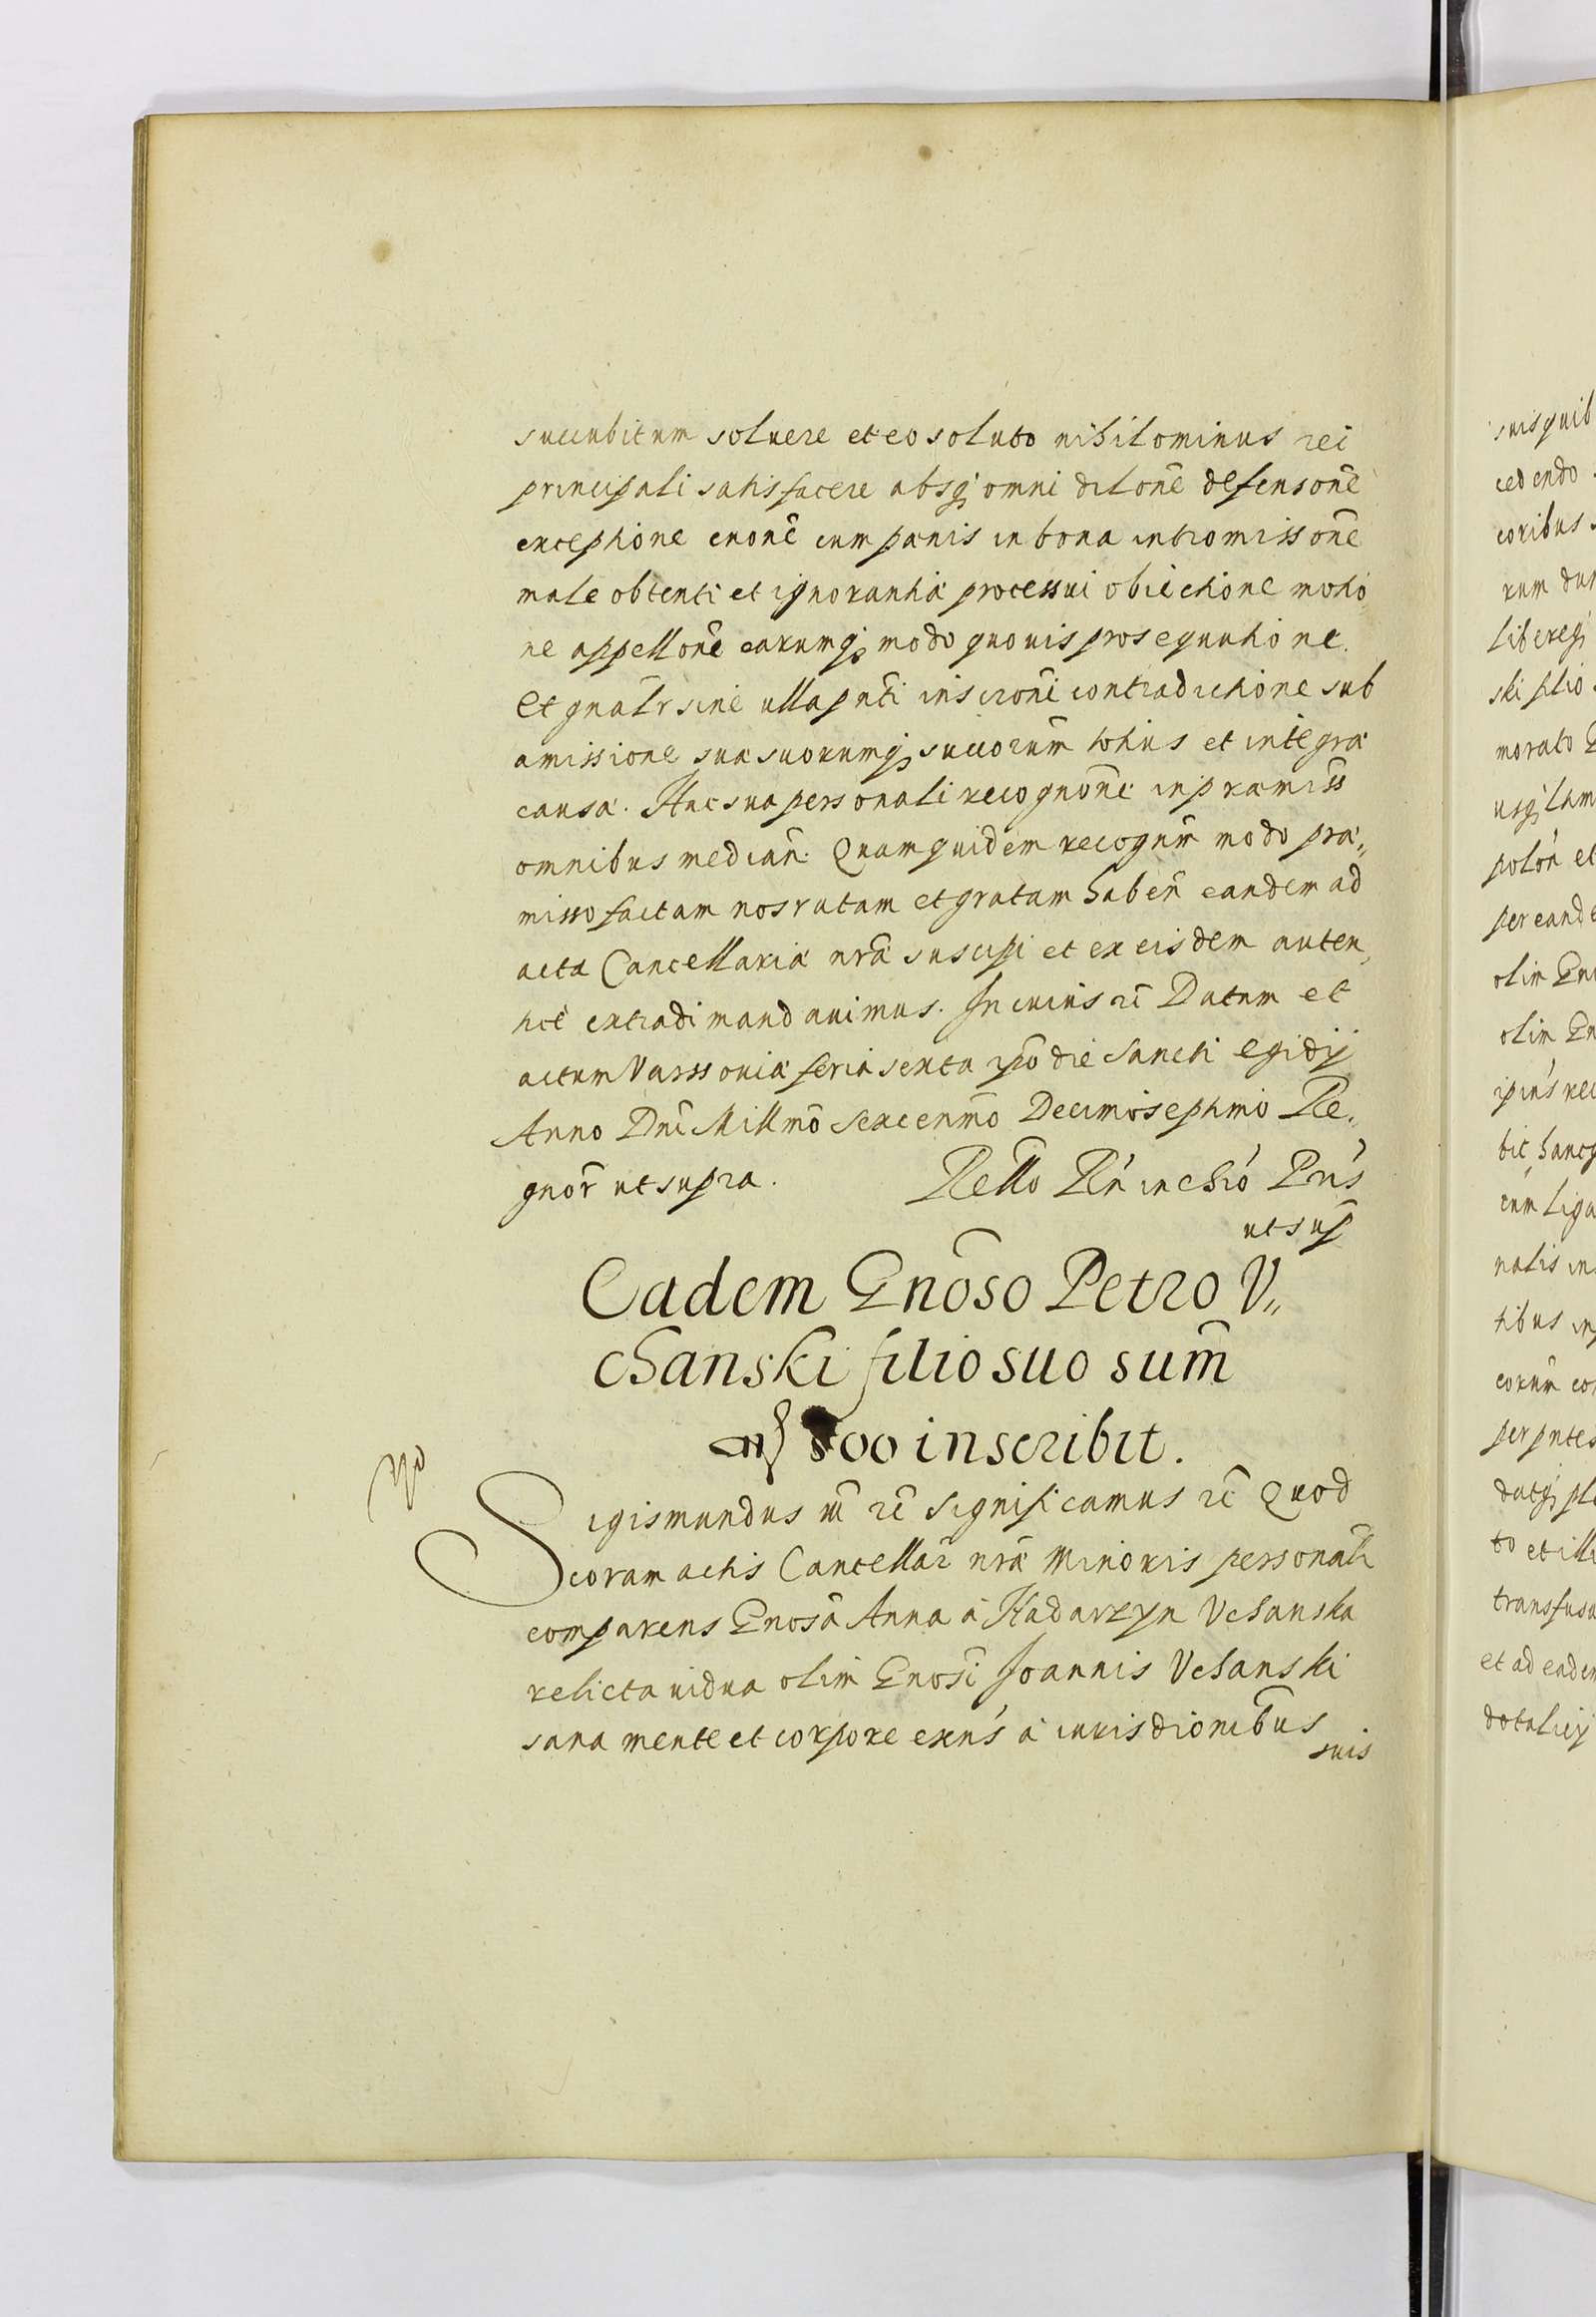 succubitum soluere et eo soluto nihilominus rei
principali satisfacere absq; omni dilone defensone
exceptione euone cum pænis in bona intromissone
male obtenti et ignorantiæ processui obiectione motio
ne appellone earumq; modo quouis prosequutione.
Et gnalr sine ulla pnti inscroni contradictione sub
amissione suæ suorumq; succorum totius et integræ
causæ. Hac sua personali recognone in præmiss
omnibus median. Quam quidem recognm modo præ,,
misso factam nos ratam et gratam haben eandem ad
acta Cancellariæ nræ suscipi et ex eisdem auten,
tice extradi mandauimus. In cuius rei Datum et
actum Varssouiæ feria sexta ipo die Sancti Egidij
Anno Dni Millmo sexcenmo Decimoseptimo Re,,
gnor ut supra. Rello Rn in chro Pris
ut sup
Eadem Gnoso Petro V,,
chanski filio suo sum
800 inscribit.
Sigismundus in rei significamus rei Quod
coram actis Cancellar nræ Minoris personali
comparens Gnosa Anna à Nadarzyn Vchanska
relicta uidua olim Gnosi Joannis Vchanski
sana mente et corpore exns à iurisdionibus
suis
suis quib
cedendo
coribus
rum dun
libereq;
ski filio
morato
usq; tam
polon et
per eande
olim Gn
olim Gn
ipius rec
bit hancq
cum liga
natis in
tibus in
eorum con
per pntes
datq; ple
to et illi
transfusa
et ad eadem
dotalicij